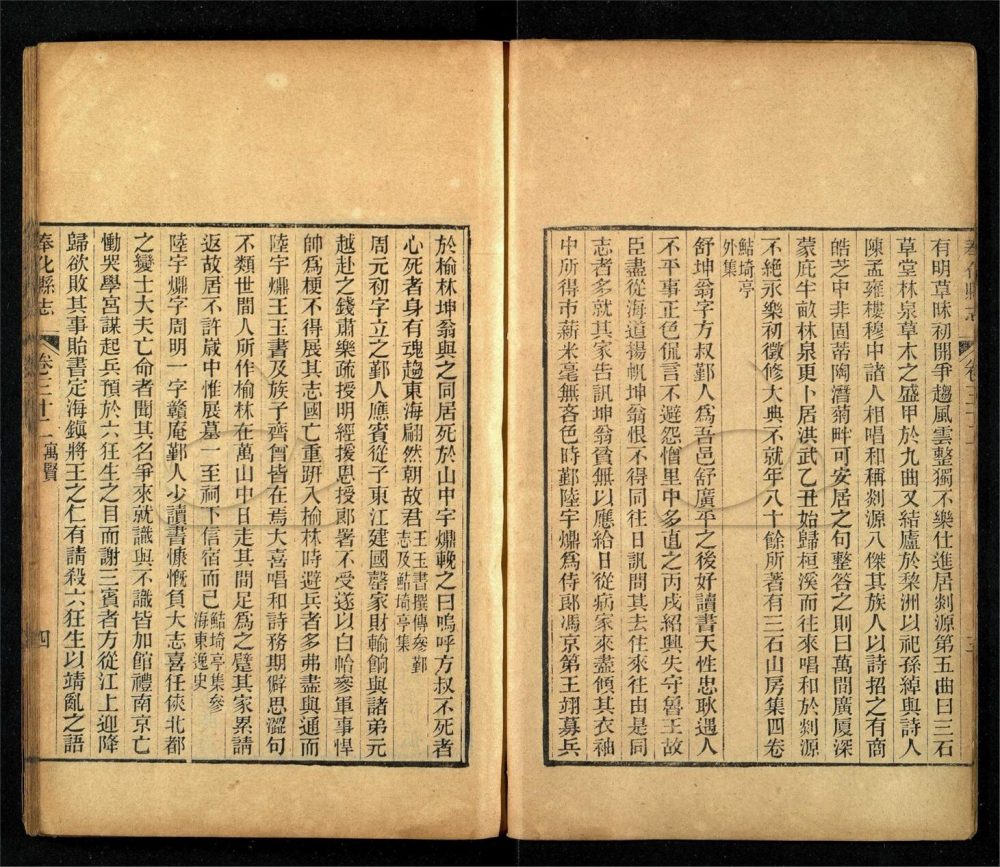 有明草昧初開爭趨風雲整獨不樂仕進居剡源第五曲曰三石
草堂林泉草木之盛甲於九曲又結廬於棃洲以祀孫綽與詩人
陳孟雍樓穆中諸人相唱和稱剡源八傑其族人以詩招之有商
皓芝中非固蒂陶潛菊畔可安居之句整答之則曰萬間廣厦深
蒙庇半畝林泉更卜居洪武乙丑始歸桓溪而往來唱和於剡源
不絶永樂初徵修大典不就年八十餘所著有三石山房集四卷
鮚埼亭
外集
舒坤翁字方叔鄞人爲吾邑舒廣平之後好讀書天性忠耿遇人
不平事正色侃言不避怨憎里中多直之丙戌紹興失守魯王故
臣盡從海道揚帆坤翁恨不得同往日訊問其去住來往由是同
志者多就其家告訊坤翁貧無以應給日從病家來盡傾其衣袖
中所得市薪米毫無吝色時鄞陸宇𤐤爲侍郞馮京第王翊募兵
奉化縣志
卷三十二
三
於榆林坤翁與之同居死於山中字𤐤輓之曰嗚呼方叔不死者
心死者身有魂趨東海扁然朝故君
王玉書撰傳參鄞
志及鮚埼亭集
周元初字立之鄞人應賓從子東江建國罄家財輸餉與諸弟元
越赴之錢肅樂疏授明經援恩授郞署不受遂以白帢參軍事悍
帥爲梗不得展其志國亡重趼入榆林時避兵者多弗盡與通而
陸宇𤐤王玉書及族子齊曾皆在焉大喜唱和詩務期僻思澀句
不類世間人所作榆林在萬山中日走其間足爲之躄其家累請
返故居不許歲中惟展墓一至祠下信宿而已
鮚埼亭集參
海東逸史
陸宇𤐤字周明一字贛庵鄞人少讀書慷慨負大志喜任俠北都
之變士大夫亡命者聞其名爭來就識與不識皆加館禮南京亡
慟哭學宮謀起兵預於六狂生之目而謝三賓者方從江上迎降
歸欲敗其事貽書定海鎭將王之仁有請殺六狂生以靖亂之語
奉化縣志
卷三十二
寓賢
四